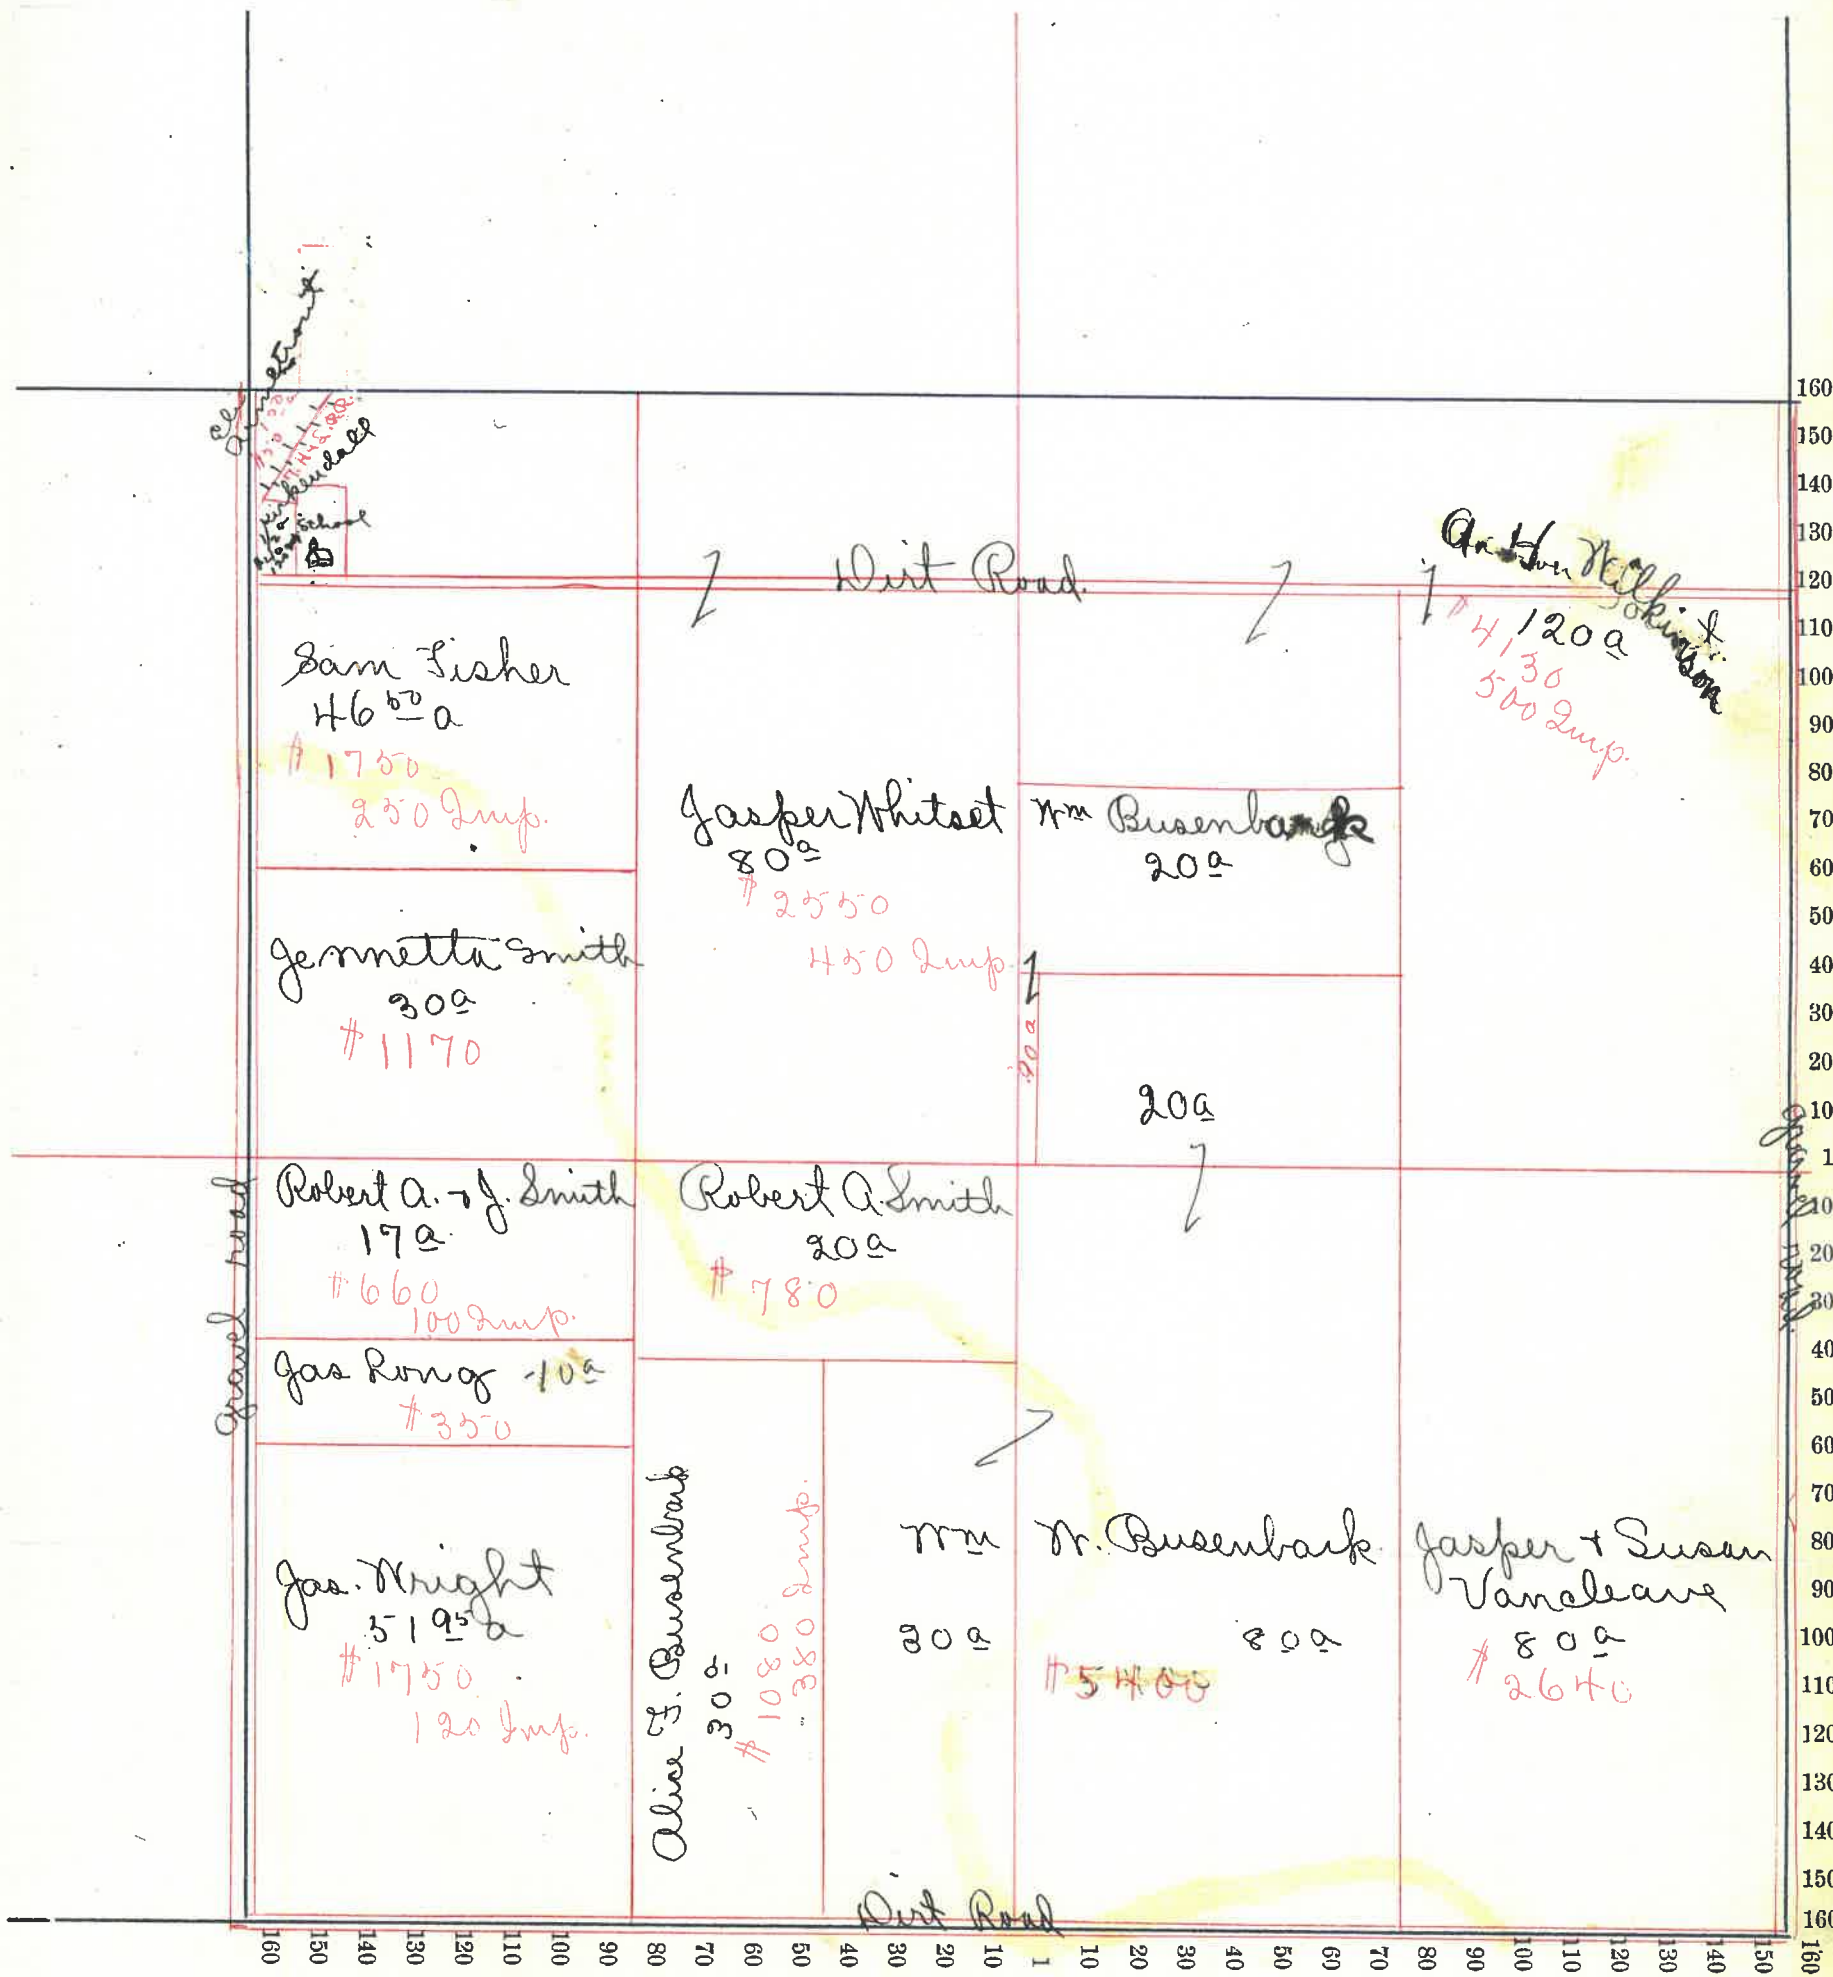 Kirkendall
School
Dirt Road.
Wilkinson
120 a
$4130
500 Imp.
Sam Fisher
46 50 a
$1750
250 Imp.
Jasper Whitset
80 a
$2550
450 Imp.
Wm Busenbark
20 a
Jennetta Smith
30 a
$1170
20 a
Robert A. + J. Smith
17 a.
$660
100 Imp.
Robert A. Smith
20 a
$780
Jas Long 10 a
$350
Jas. Wright
51 95 a
$1750
120 Imp.
Alice F. Busenbark
30 a
$1080
380 Imp.
Wm W. Busenbark
30 a
80 a
$5400
Jasper + Susan
Vancleave
80 a
$2640
Dirt Road
Gravel road
Gravel road
160
150
140
130
120
110
100
90
80
70
60
50
40
30
20
10
1
10
20
30
40
50
60
70
80
90
100
110
120
130
140
150
160
160 150 140 130 120 110 100 90 80 70 60 50 40 30 20 10 1 10 20 30 40 50 60 70 80 90 100 110 120 130 140 150 160